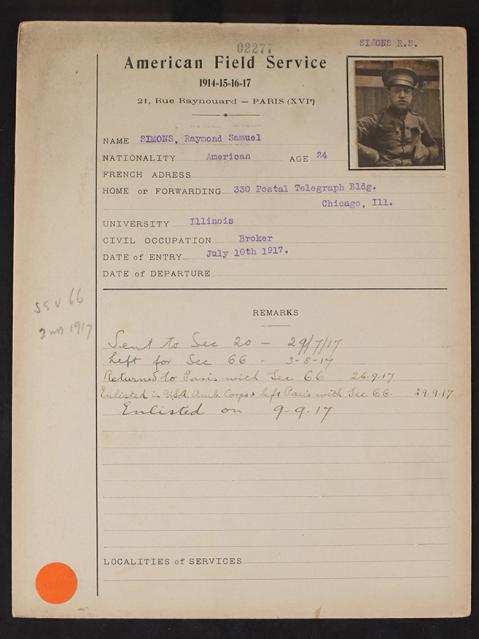 02277
SIMONS R.S.
American Field Service
1914-15-16-17
21, Rue Raynouard — PARIS (XVIe)
NAME SIMONS, Raymond Samuel
NATIONALITY American AGE 24
FRENCH ADRESS
HOME or FORWARDING 330 Postal Telegraph Bldg.
Chicago, Ill.
UNIVERSITY Illinois
CIVIL OCCUPATION Broker
DATE of ENTRY July 10th 1917.
DATE of DEPARTURE
SSU 66
1917
REMARKS
Sent to Sec 20 - 29/7/17
Left for Sec 66 - 3-8-17
Returned to Paris with Sec 66 24.9.17
Enlisted in USA Amb. Corps & left Paris with Sec 66. 29.9.17
Enlisted on 9-9.17
LOCALITIES of SERVICES